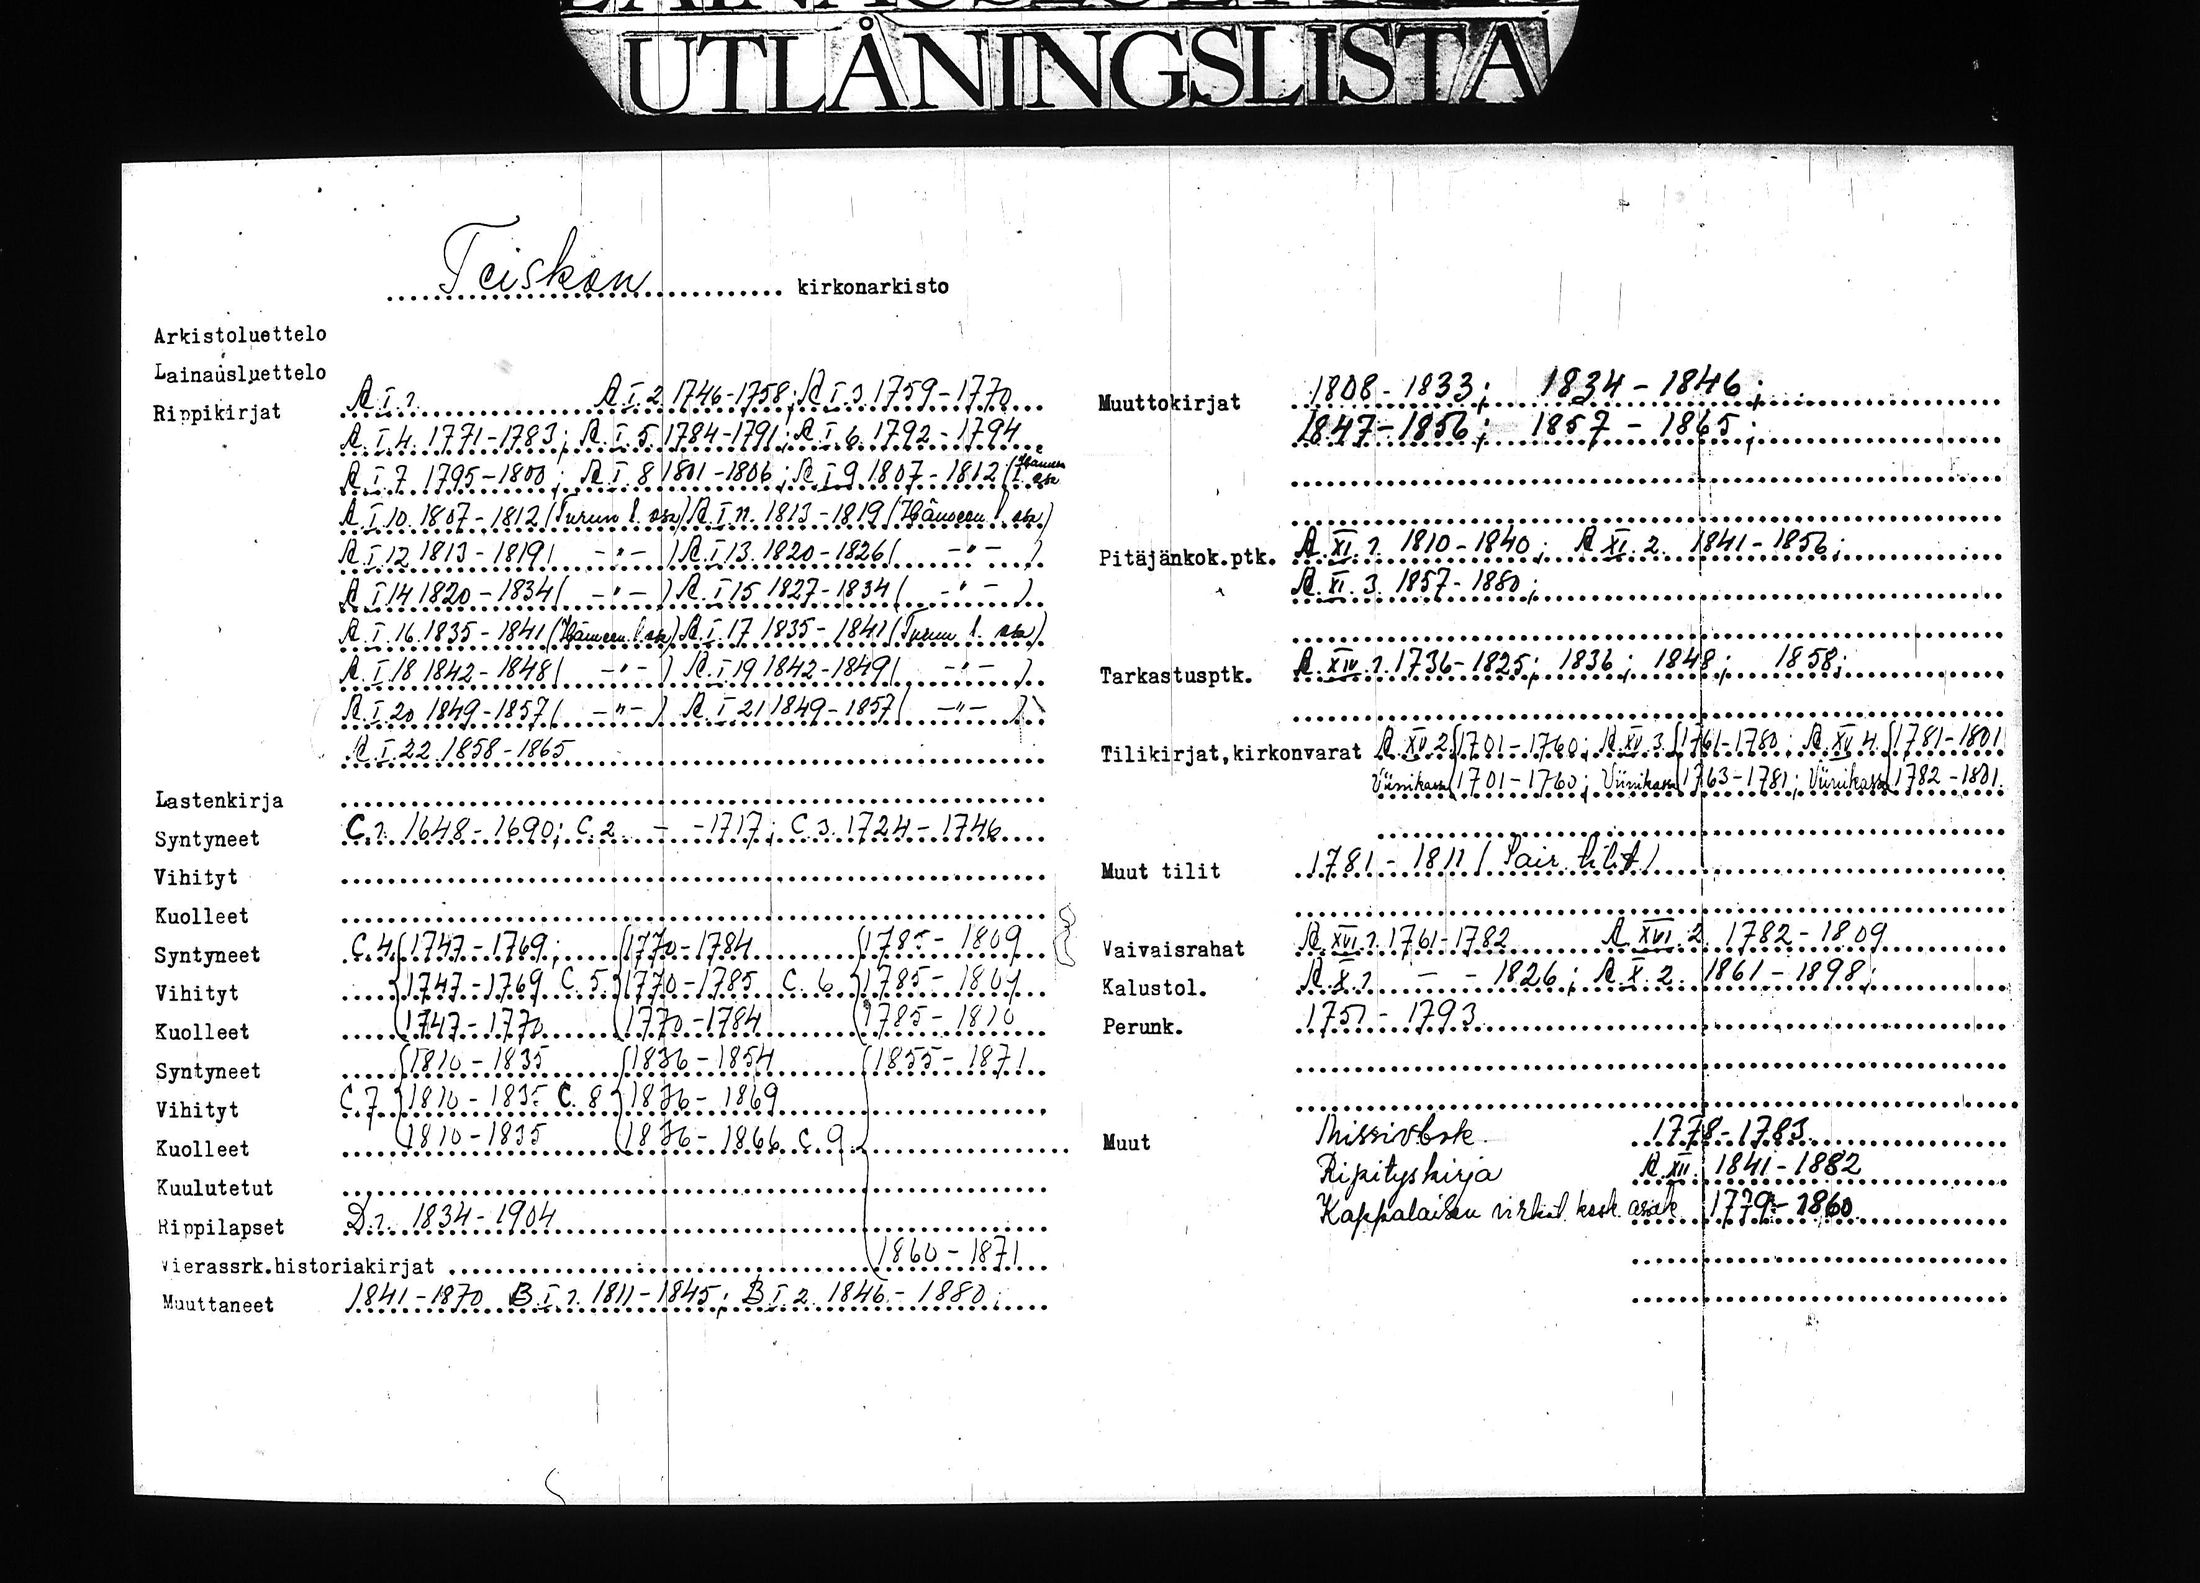 UTLÅNINGSLISTA
Teiskon kirkonarkisto
Arkistoluettelo
Lainausluettelo
Rippikirjat A.I.1. A.I.2 1746-1758; A.I.3. 1759-1770
A.I.4. 1771-1783; A.I.5. 1784-1791; A.I.6. 1792-1794
A.I.7 1795-1800; A.I.8 1801-1806; A.I.9 1807-1812 (Hämeen l. osa
A.I.10. 1807-1812 (Turun l. osa) A.I.11. 1813-1819 (Hämeen l. osa)
A.I.12 1813-1819 ( -"- ) A.I.13. 1820-1826 ( -"- )
A.I.14 1820-1834 ( -"- ) A.I.15 1827-1834 ( -"- )
A.I.16. 1835-1841 (Hämeen l. osa) A.I.17 1835-1841 (Turun l. osa)
A.I.18 1842-1848 ( -"- ) A.I.19 1842-1849 ( -"- )
A.I.20 1849-1857 ( -"- ) A.I.21 1849-1857 ( -"- )
A.I.22. 1858-1865
Lastenkirja
Syntyneet C.1. 1648-1690; C.2. - -1717; C.3. 1724-1746
Vihityt
Kuolleet
Syntyneet C.4. (1747-1769; (1770-1784 (1785-1809
Vihityt 1747-1769 C.5. 1770-1785 C.6. 1785-1809
Kuolleet (1747-1770 (1770-1784 (1785-1810
Syntyneet (1810-1835 (1836-1854 (1855-1871
Vihityt C.7 1810-1835 C.8 1836-1869
Kuolleet (1810-1835 (1836-1866 C.9.
Kuulutetut
Rippilapset D.1. 1834-1904
Vierassrk.historiakirjat 1860-1871
Muuttaneet 1841-1870 B.I.1. 1811-1845; B.I.2. 1846-1880;
Muuttokirjat 1808-1833; 1834-1846;
1847-1856; 1857-1865;
Pitäjänkok.ptk. A.XI.1. 1810-1840; A.XI.2. 1841-1856;
A.XI.3. 1857-1880;
Tarkastusptk. A.XIV.1. 1736-1825; 1836; 1848; 1858;
Tilikirjat,kirkonvarat A.XV.2. (1701-1760; A.XV.3. (1761-1780; A.XV.4. (1781-1801
Viinikassa (1701-1760; Viinikassa (1763-1781; Viinikassa (1782-1801.
Muut tilit 1781-1811 (Sair. tilit)
Vaivaisrahat A.XVI.1. 1761-1782 A.XVI.2. 1782-1809
Kalustol. A.X.1. - - 1826; A.X.2. 1861-1898;
Perunk. 1751-1793
Muut Missivbok. 1778-1783
Ripityskirja A.XII. 1841-1882
Kappalaisen virkat. kosk. asiak 1779-1860